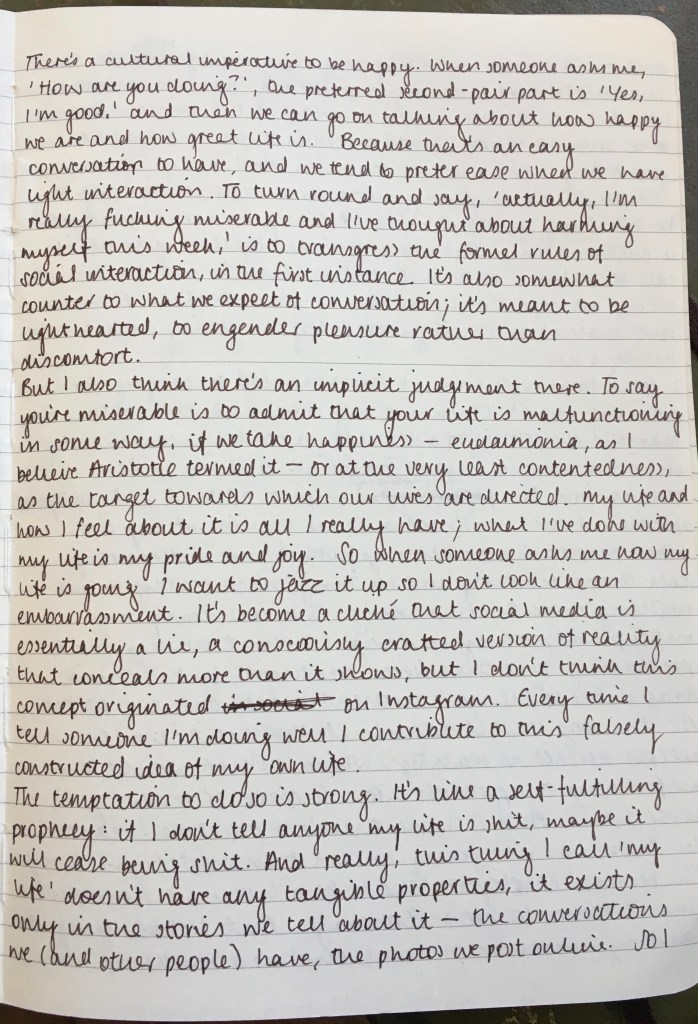 There's a cultural imperative to be happy. When someone asks me,
'How are you doing?', the preferred second-pair part is 'Yes,
I'm good,' and then we can go on talking about how happy
we are and how great life is. Because that's an easy
conversation to have, and we tend to prefer ease when we have
light interaction. To turn round and say, 'actually, I'm
really fucking miserable and I've thought about harming
myself this week,' is to transgress the formal rules of
social interaction, in the first instance. It's also somewhat
counter to what we expect of conversation; it's meant to be
lighthearted, to engender pleasure rather than
discomfort.
But I also think there's an implicit judgment there. To say
you're miserable is to admit that your life is malfunctioning
in some way, if we take happiness – eudaimonia, as I
believe Aristotle termed it – or at the very least contentedness,
as the target towards which our lives are directed. My life and
how I feel about it is all I really have; what I've done with
my life is my pride and joy. So when someone asks me how my
life is going I want to jazz it up so I don't look like an
embarrassment. It's become a cliché that social media is
essentially a lie, a consciously crafted version of reality
that conceals more than it shows, but I don't think this
concept originated in social on Instagram. Every time I
tell someone I'm doing well I contribute to this falsely
constructed idea of my own life.
The temptation to do so is strong. It's like a self-fulfilling
prophecy: if I don't tell anyone my life is shit, maybe it
will cease being shit. And really, this thing I call 'my
life' doesn't have any tangible properties, it exists
only in the stories we tell about it – the conversations
we (and other people) have, the photos we post online. So I